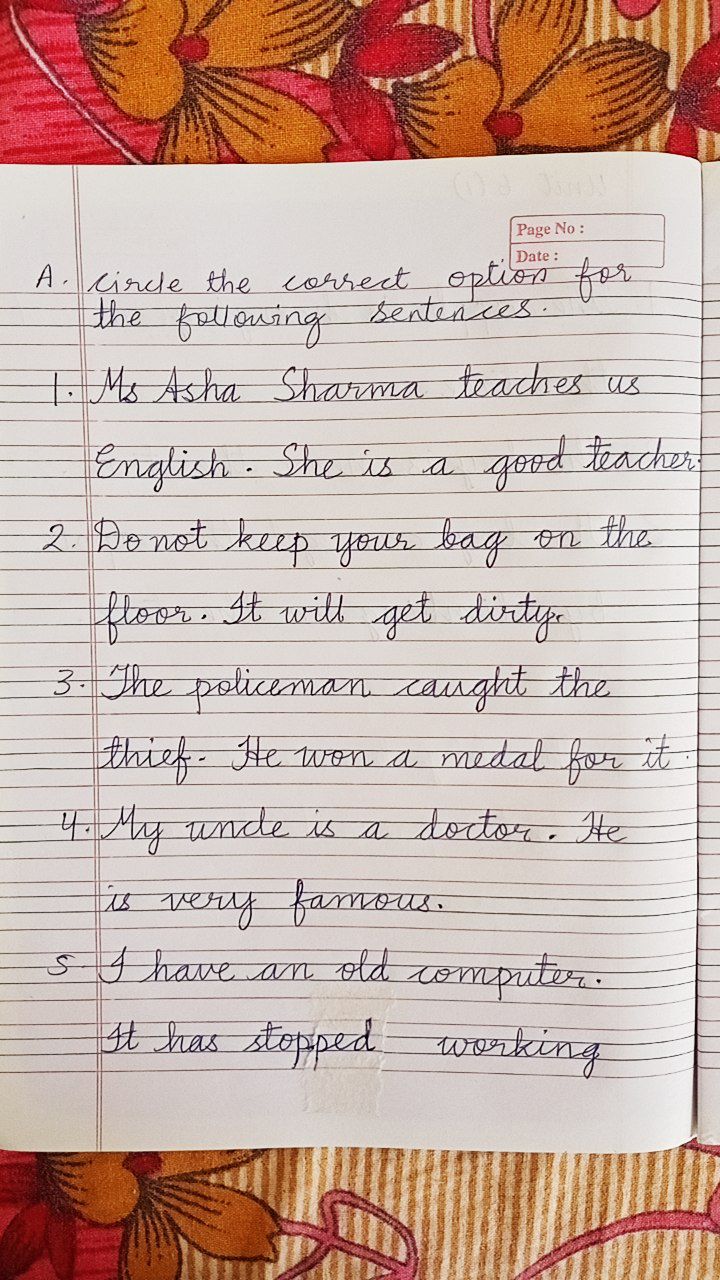 Page No :
Date :
A. Circle the correct option for
the following sentences.
1. Ms Asha Sharma teaches us
English. She is a good teacher.
2. Do not keep your bag on the
floor. It will get dirty.
3. The policeman caught the
thief. He won a medal for it.
4. My uncle is a doctor. He
is very famous.
5. I have an old computer.
It has stopped working